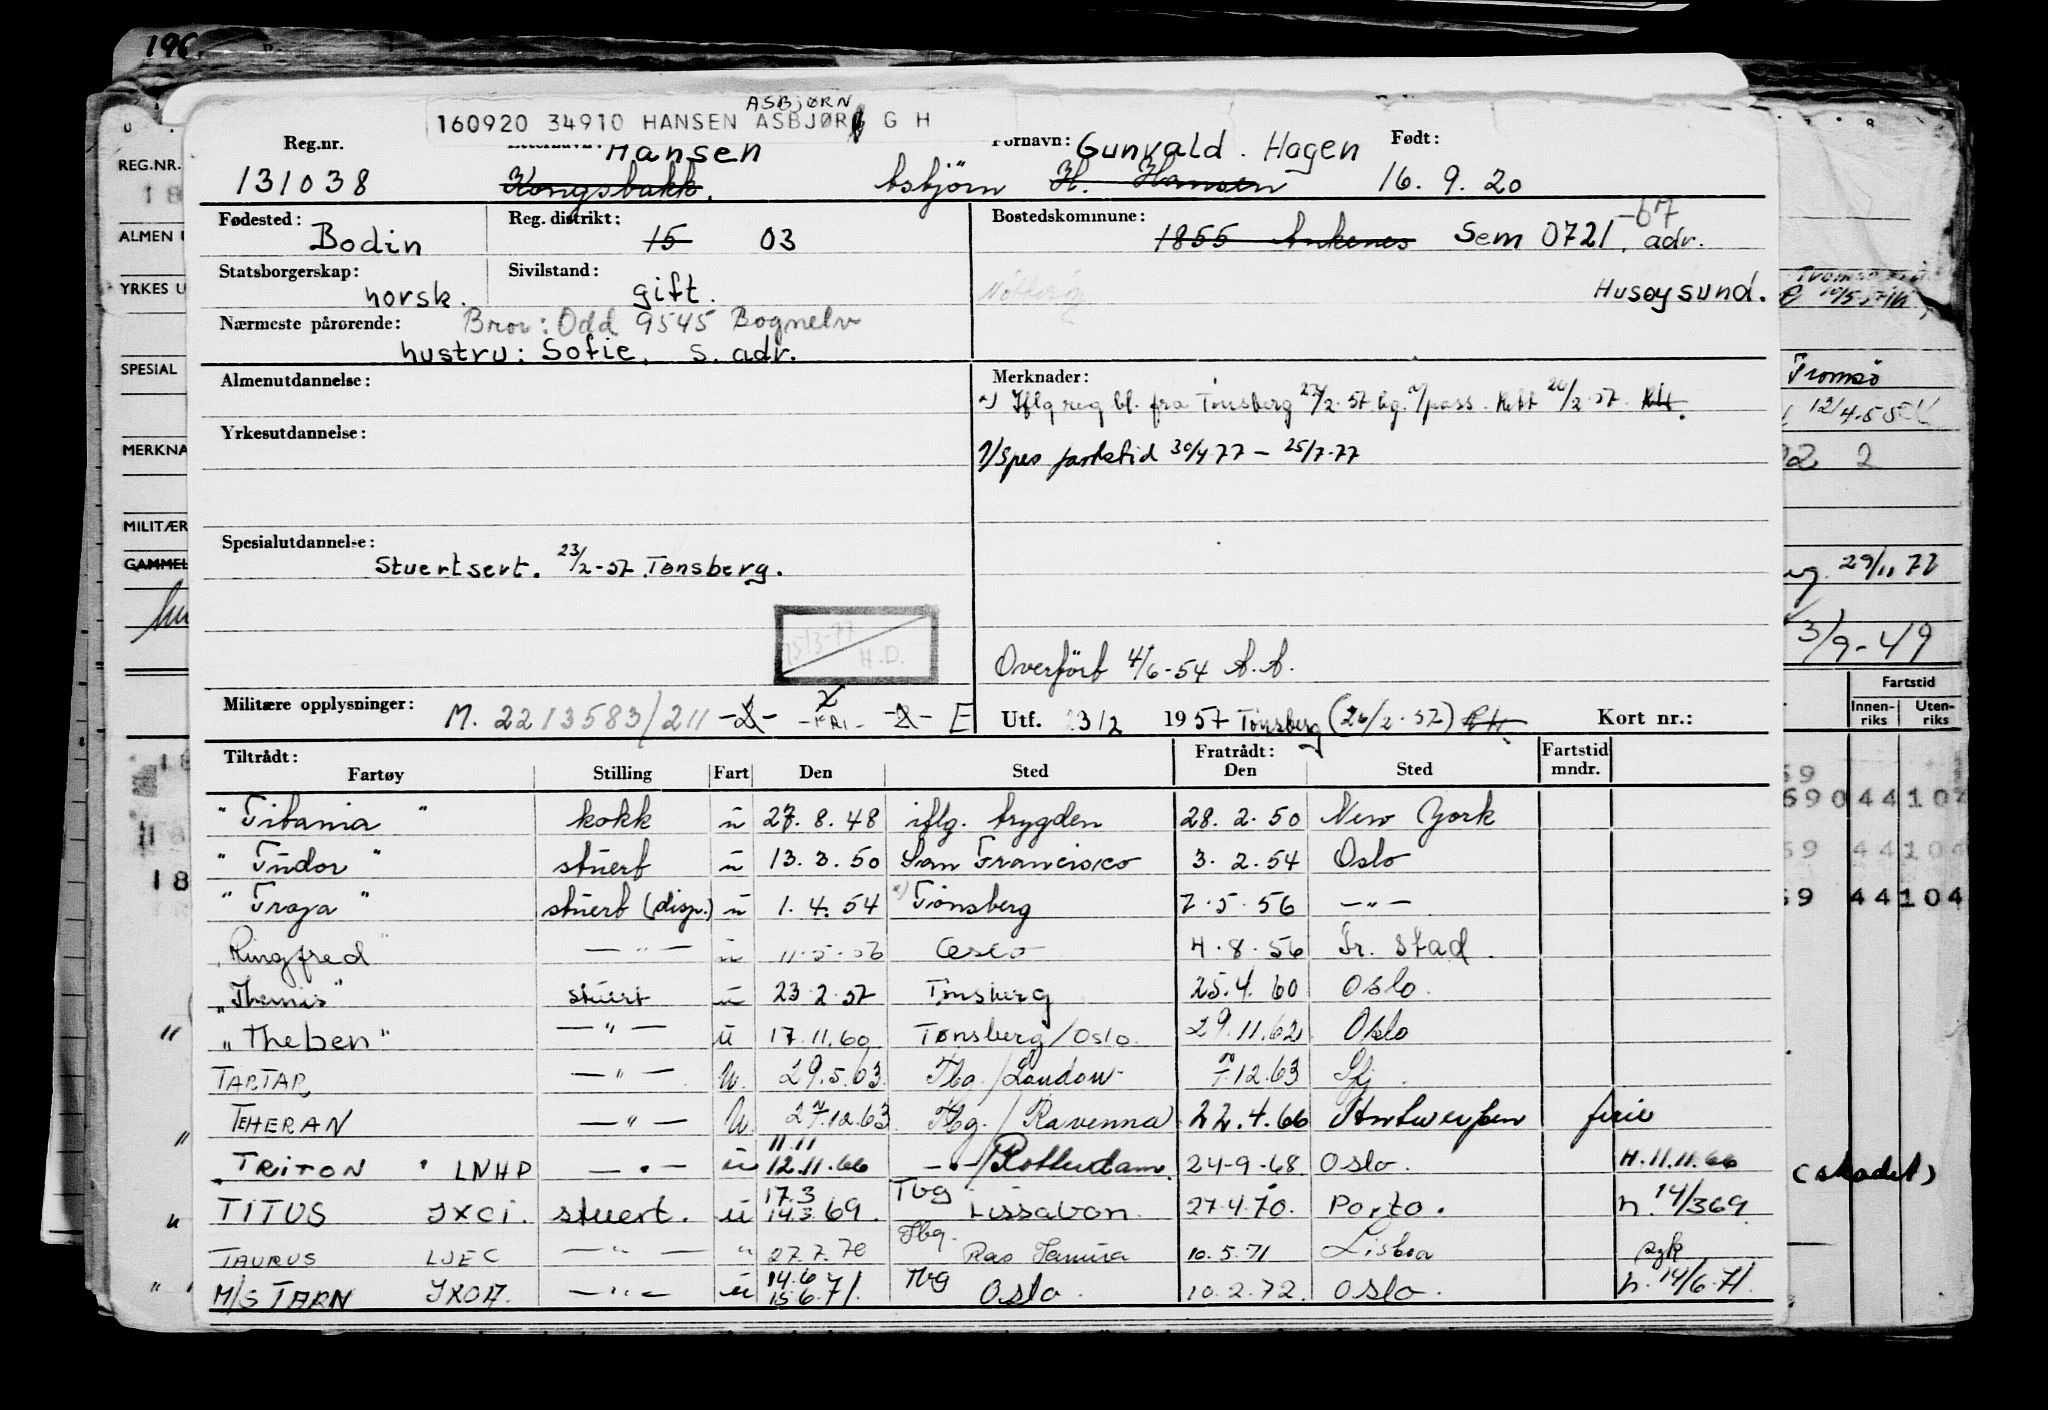 196
ASBJØRN
160920 34910 HANSEN ASBJØR G H
Reg.nr. Hansen Fornavn: Gunvald. Hagen Født:
131038 Kongsbakk. Asbjörn H. Hansen 16. 9. 20
Fødested: Bodin Reg. distrikt: 15 03 Bostedskommune: 1855 Ankenes Sem 0721. adr. -67
Statsborgerskap: norsk. Sivilstand: gift. Nötteröy Husøysund.
Nærmeste pårørende: Bror: Odd 9545 Bognelv
hustru: Sofie, s. adr.
Almenutdannelse: Merknader:
Iflg reg bl. fra Tønsberg 23/2-57
Yrkesutdannelse:
1/ Spes fartstid 30/4 77 – 25/7-77
Spesialutdannelse: Stuertsert. 23/2-57. Tønsberg.
15/3-77
H.D.
Overfört 4/6-54 A.A.
Militære opplysninger: M. 2213583/211 -2- -FRI- -2- E Utf. 23/2 1957 Tønsberg (26/2-57) Kort nr.:
Tiltrådt: Fratrådt: Fartstid
Fartøy Stilling Fart Den Sted Den Sted mndr.
" Titania " kokk u 27. 8. 48 iflg. trygden 28. 2. 50 New York
" Tudor " stuert u 13. 3. 50 San Francisco 3. 2. 54 Oslo
" Troja " stuert (disp.) u 1. 4. 54 Tønsberg 7. 5. 56 — " —
" Ringfred " — " — u 11-5-56 Oslo 4. 8. 56 Fr. stad.
" Themis " stuert u 23 2 57 Tønsberg 25. 4. 60 Oslo.
" Theben " — " — u 17. 11. 60 Tønsberg/Oslo. 29. 11. 62 Oslo
TARTAR — " — U. 29. 5. 63. Tbg./London 7. 12. 63 Sfj.
TEHERAN — " — U. 27. 12. 63 Tbg./Ravenna 22. 4. 66 Antwerpen ferie
11 11
" TRITON " LNHP — " — u 12. 11. 66 — " —/Rotterdam. 24-9-68 Oslo. H. 11. 11. 66
17. 3
TITUS JXCI. stuert. u 14. 3. 69. Tbg Lissabon. 27. 4. 70. Porto. h. 14/3 69.
TAURUS LJEC — " — " 27. 7. 70 Tbg. Ras Tanura 10. 5. 71 Lisboa syk
14. 6
M/S TARN JXOA. — " — u 15. 6. 71. Tbg Oslo. 10. 2. 72. Oslo. h. 14/6. 71.
REG.NR.
18
ALMEN U
YRKES U
SPESIAL
MERKNA
MILITÆR
GAMMEL
18
Tromsö
12/4-55
2
29/11 72
3/9-49
Fartstid
Innen-riks Uten-riks
69
690 44 104
69 44104
69 44104
(skadet)